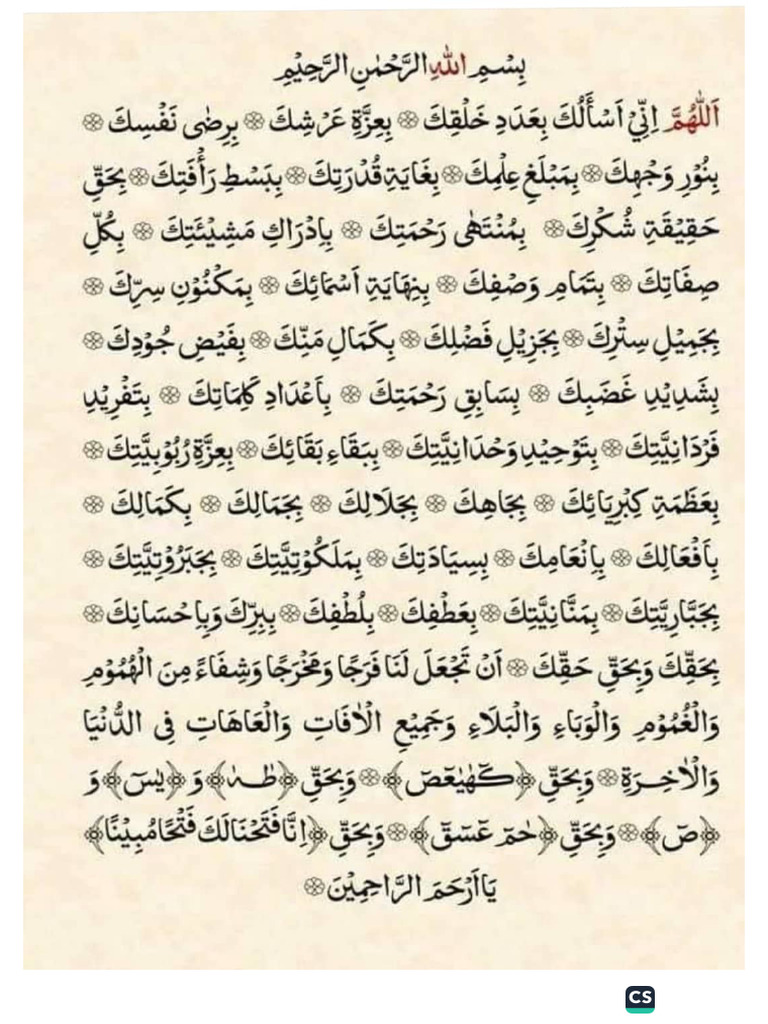 بِسْمِ اللّٰهِ الرَّحْمٰنِ الرَّحِيْمِ
اَللّٰهُمَّ اِنِّيْ اَسْأَلُكَ بِعَدَدِ خَلْقِكَ ۞ بِعِزَّةِ عَرْشِكَ ۞ بِرِضٰى نَفْسِكَ ۞
بِنُوْرِ وَجْهِكَ ۞ بِمَبْلَغِ عِلْمِكَ ۞ بِغَايَةِ قُدْرَتِكَ ۞ بِبَسْطِ رَأْفَتِكَ ۞ بِحَقِّ
حَقِيْقَةِ شُكْرِكَ ۞ بِمُنْتَهٰى رَحْمَتِكَ ۞ بِاِدْرَاكِ مَشِيْئَتِكَ ۞ بِكُلِّ
صِفَاتِكَ ۞ بِتَمَامِ وَصْفِكَ ۞ بِنِهَايَةِ اَسْمَائِكَ ۞ بِمَكْنُوْنِ سِرِّكَ ۞
بِجَمِيْلِ سِتْرِكَ ۞ بِجَزِيْلِ فَضْلِكَ ۞ بِكَمَالِ مَنِّكَ ۞ بِفَيْضِ جُوْدِكَ ۞
بِشَدِيْدِ غَضَبِكَ ۞ بِسَابِقِ رَحْمَتِكَ ۞ بِاَعْدَادِ كَلِمَاتِكَ ۞ بِتَفْرِيْدِ
فَرْدَانِيَّتِكَ ۞ بِتَوْحِيْدِ وَحْدَانِيَّتِكَ ۞ بِبَقَاءِ بَقَائِكَ ۞ بِعِزَّةِ رُبُوْبِيَّتِكَ ۞
بِعَظَمَةِ كِبْرِيَائِكَ ۞ بِجَاهِكَ ۞ بِجَلَالِكَ ۞ بِجَمَالِكَ ۞ بِكَمَالِكَ ۞
بِاَفْعَالِكَ ۞ بِاِنْعَامِكَ ۞ بِسِيَادَتِكَ ۞ بِمَلَكُوْتِيَّتِكَ ۞ بِجَبَرُوْتِيَّتِكَ ۞
بِجَبَّارِيَّتِكَ ۞ بِمَنَّانِيَّتِكَ ۞ بِعَطْفِكَ ۞ بِلُطْفِكَ ۞ بِبِرِّكَ وَبِاِحْسَانِكَ ۞
بِحَقِّكَ وَبِحَقِّ حَقِّكَ ۞ اَنْ تَجْعَلَ لَنَا فَرَجًا وَمَخْرَجًا وَشِفَاءً مِنَ الْهُمُوْمِ
وَالْغُمُوْمِ وَالْوَبَاءِ وَالْبَلَاءِ وَجَمِيْعِ الْاٰفَاتِ وَالْعَاهَاتِ فِى الدُّنْيَا
وَالْاٰخِرَةِ ۞ وَبِحَقِّ ﴿كٓهٰيٰعٓصٓ﴾ ۞ وَبِحَقِّ ﴿طٰهٰ﴾ وَ ﴿يٰسٓ﴾ وَ
﴿صٓ﴾ ۞ وَبِحَقِّ ﴿حٰمٓ عٓسٓقٓ﴾ ۞ وَبِحَقِّ ﴿اِنَّا فَتَحْنَا لَكَ فَتْحًا مُبِيْنًا﴾
يَا اَرْحَمَ الرَّاحِمِيْنَ ۞
CS